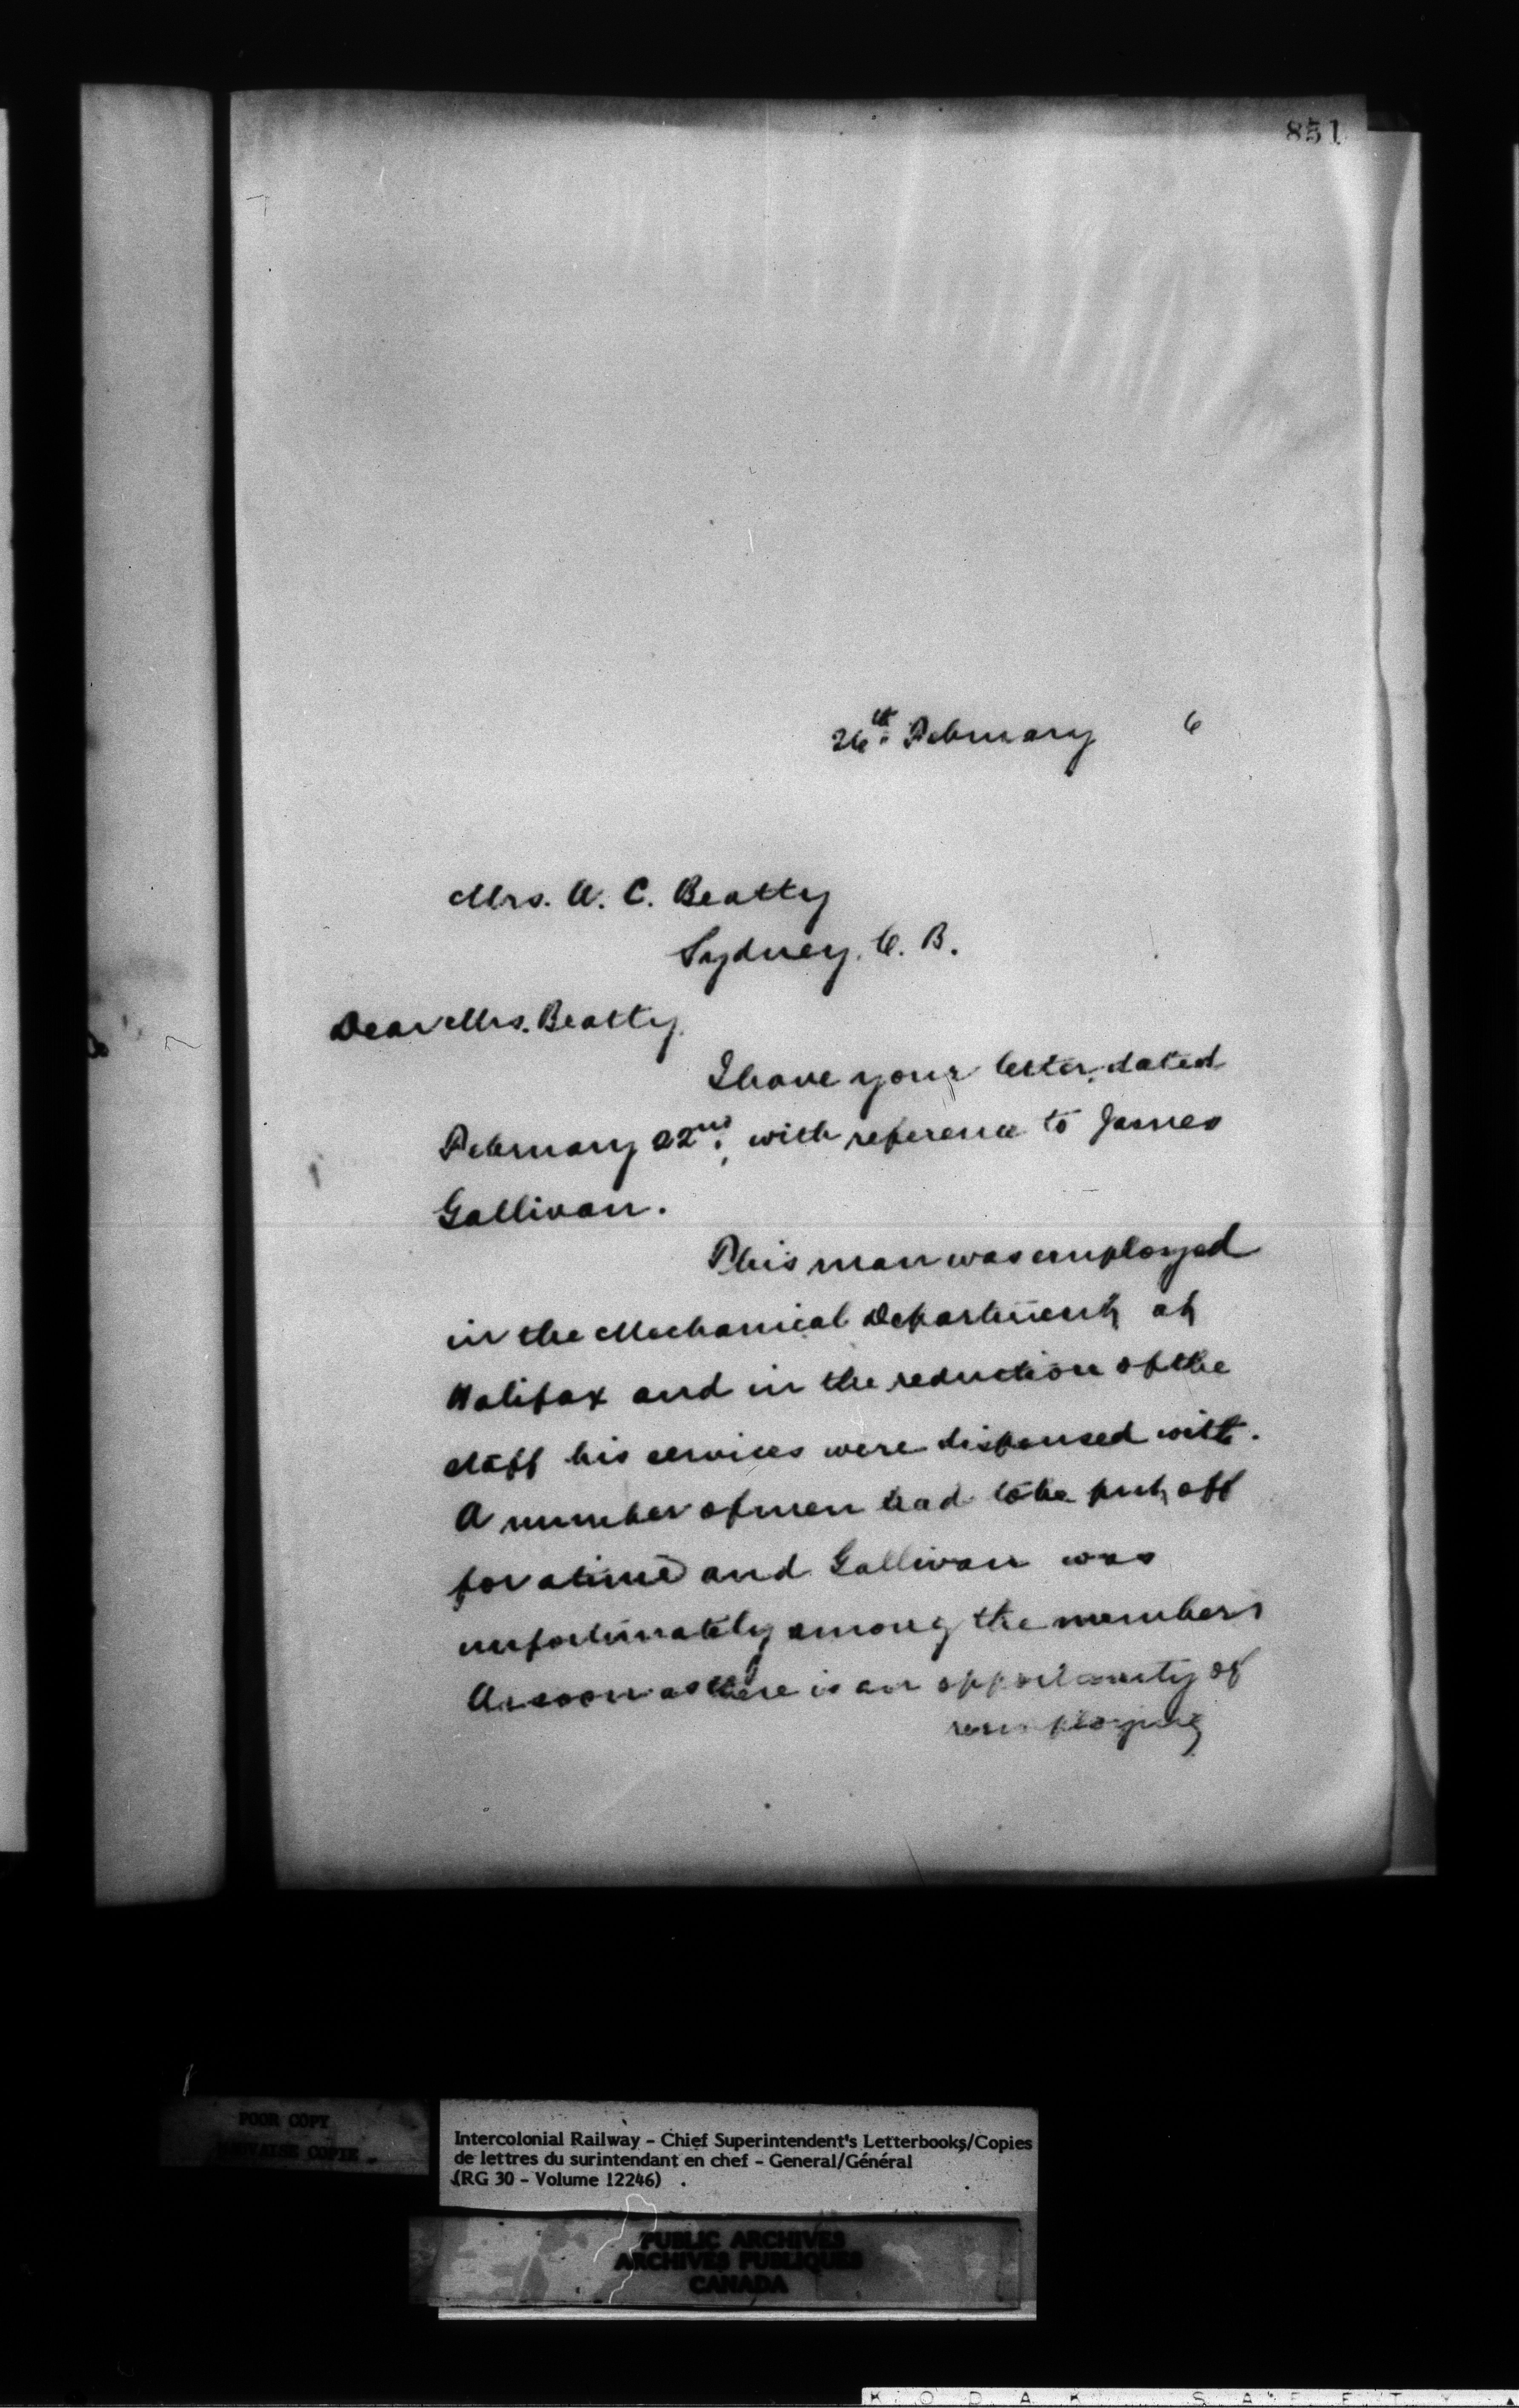 851
26th February 6
Mrs. A. C. Beatty
Sydney, C. B.
Dear Mrs. Beatty,
I have your letter, dated
February 22nd, with reference to James
Gallivan.
This man was employed
in the Mechanical Department, at
Halifax and in the reduction of the
staff his services were dispensed with.
A number of men had to be put off
for a time and Gallivan was
unfortunately among the members
As soon as there is an opportunity of
reemploying
POOR COPY
MAUVAISE COPIE
Intercolonial Railway - Chief Superintendent's Letterbooks/Copies
de lettres du surintendant en chef - General/Général
(RG 30 - Volume 12246)
PUBLIC ARCHIVES
ARCHIVES PUBLIQUES
CANADA
K O D A K S A F E T Y